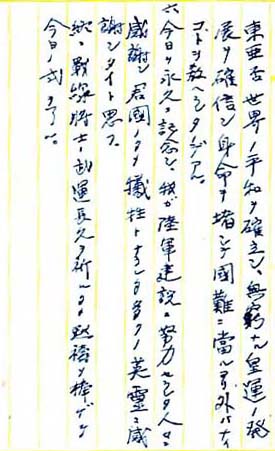 東亜否世界ノ平和ヲ確立シ、無窮ナル皇運ノ発
展ヲ確信シ身命ヲ堵シテ國難ニ當ル以外ハナイ
コトヲ教ヘシタノデアル。
六、今日ヲ永久ニ記念シ、我ガ陸軍建設ニ努力セシ人々ニ
感謝シ君國ノタメ犠牲トナラレタル多クノ英霊ニ感
謝シタイト思フ。
終ニ戦線将士ノ武運長久ヲ祈ル為黙禱ヲ捧ゲテ
今日ノ式ヲ了ル。